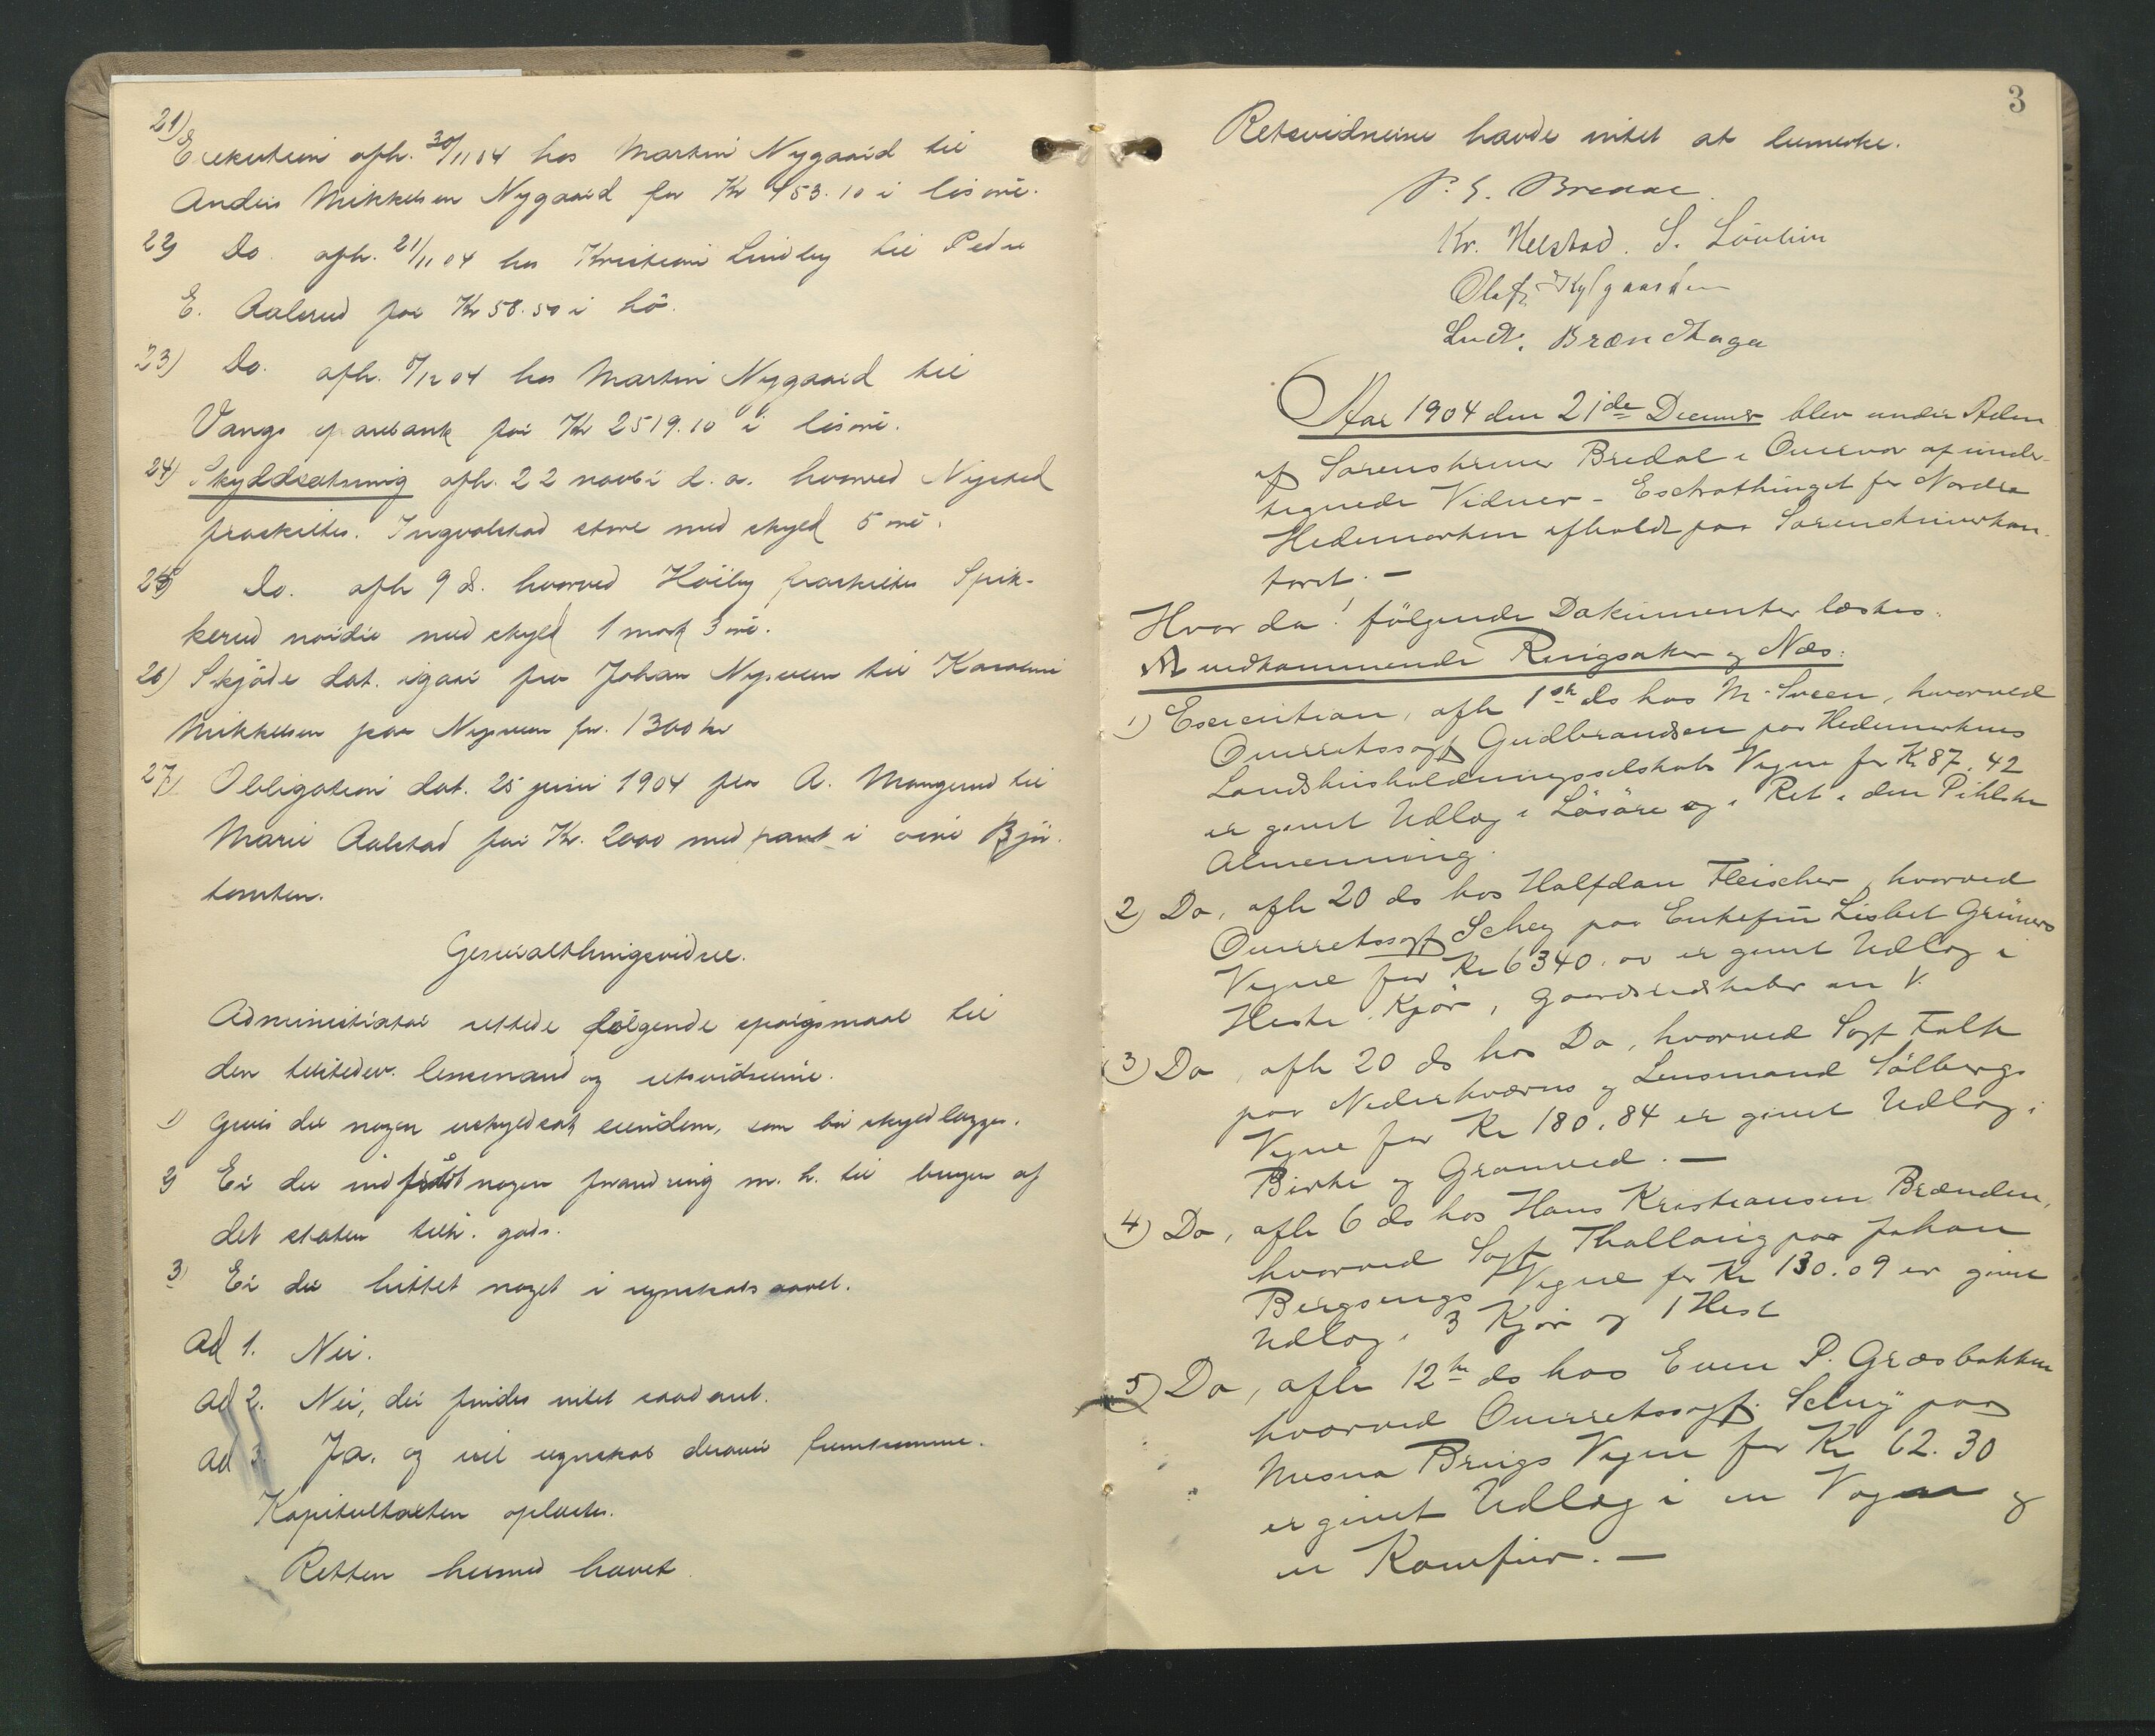 21)
Exekution afh. 30/11 04 hos Martin Nygaard til
Anders Mikkelsen Nygaard for Kr 453.10 i lösöre.
22) Do. afh. 21/11 04 hos Kristian Lindby til Peder
E. Aalerud for Kr 58.50 i hö.
23) Do. afh. 7/12 04 hos Martin Nygaard til
Vangs sparebank for Kr 2519.10 i lösöre.
24) Skyldsætning afh. 22 novbr d. a. hvorved Nysted
fraskilles Ingvalstad store med skyld 5 öre.
25) Do. afh 9 ds. hvorved Höiby fraskilles Spik-
kerud nordre med skyld 1 mark 3 öre.
26) Skjöde dat. igaar fra Johan Nysveen til Karoline
Mikkelsen paa Nysveen for 1300 kr
27) Obligation dat. 25 juni 1904 fra A. Mangerud til
Marie Aalstad for Kr. 2000 med pant i övre Björ-
tomten.
Generalthingsvidne.
Administrator rettede følgende spörgsmaal til
den tilstedev. lensmand og retsvidnerne.
1) Gives der nogen uskyldsat eiendom, som bör skyldlægges.
2) Er der indfrt nogen forandring m. h. til brugen af
det staten tilh. gods.
3) Er der hittet noget i regnskabsaaret.
Ad 1. Nei.
Ad 2. Nei, der findes intet saadant.
Ad 3. Ja, og vil regnskab derover fremkomme.
Kapiteltaxten oplæstes.
Retten hermed hævet.
3
Retsvidnerne havde intet at bemerke.
P. E. Bredal
Kr. Helstad. S. Lövlien
Olaf
Ludv. Brændhagen
Aar 1904 den 21de December blev under Adm
af Sorenskriver Bredal i Overvær af under-
tegnede Vidner - Extrathinget for Nordre
Hedemarken afholdt paa Sorenskriverkon-
toret. -
Hvor da! fölgende Dokumenter læstes.
A vedkommende Ringsaker og Næs:
1) Execution, afh 1ste ds hos M. Sveen, hvorved
Overretssagf Gudbrandsen paa Hedemarkens
Landhusholdningsselskabs Vegne for Kr 87.42
er givet Udlæg i Lösöre og i Ret i den Pihlske
Almenning.
2) Do, afh 20 ds hos Halfdan Fleischer, hvorved
Overretssagf Schey paa Enkefru Lisbet Grüners
Vegne for Kr 6340.00 er givet Udlæg i
Heste Kjör, Gaardsredskaber m V.
3) Do, afh 20 ds hos Do, hvorved Sagf Falk
paa Nederkværns og Lensmand Sölbergs
Vegne for Kr 180.84 er givet Udlæg i
Birke og Granved. -
4) Do, afh 6 ds hos Hans Kristiansen Brænden,
hvorved Sagf Thallaug paa Johan
Bergsengs Vegne for Kr 130.09 er givet
Udlæg i 3 Kjör og 1 Hest
5) Do, afh 12te ds hos Even P. Græsbakken
hvorved Overretssagf. Schey paa
Mesna Brugs Vegne for Kr 62.30
er givet Udlæg i en Vogn og
en Komfur. -